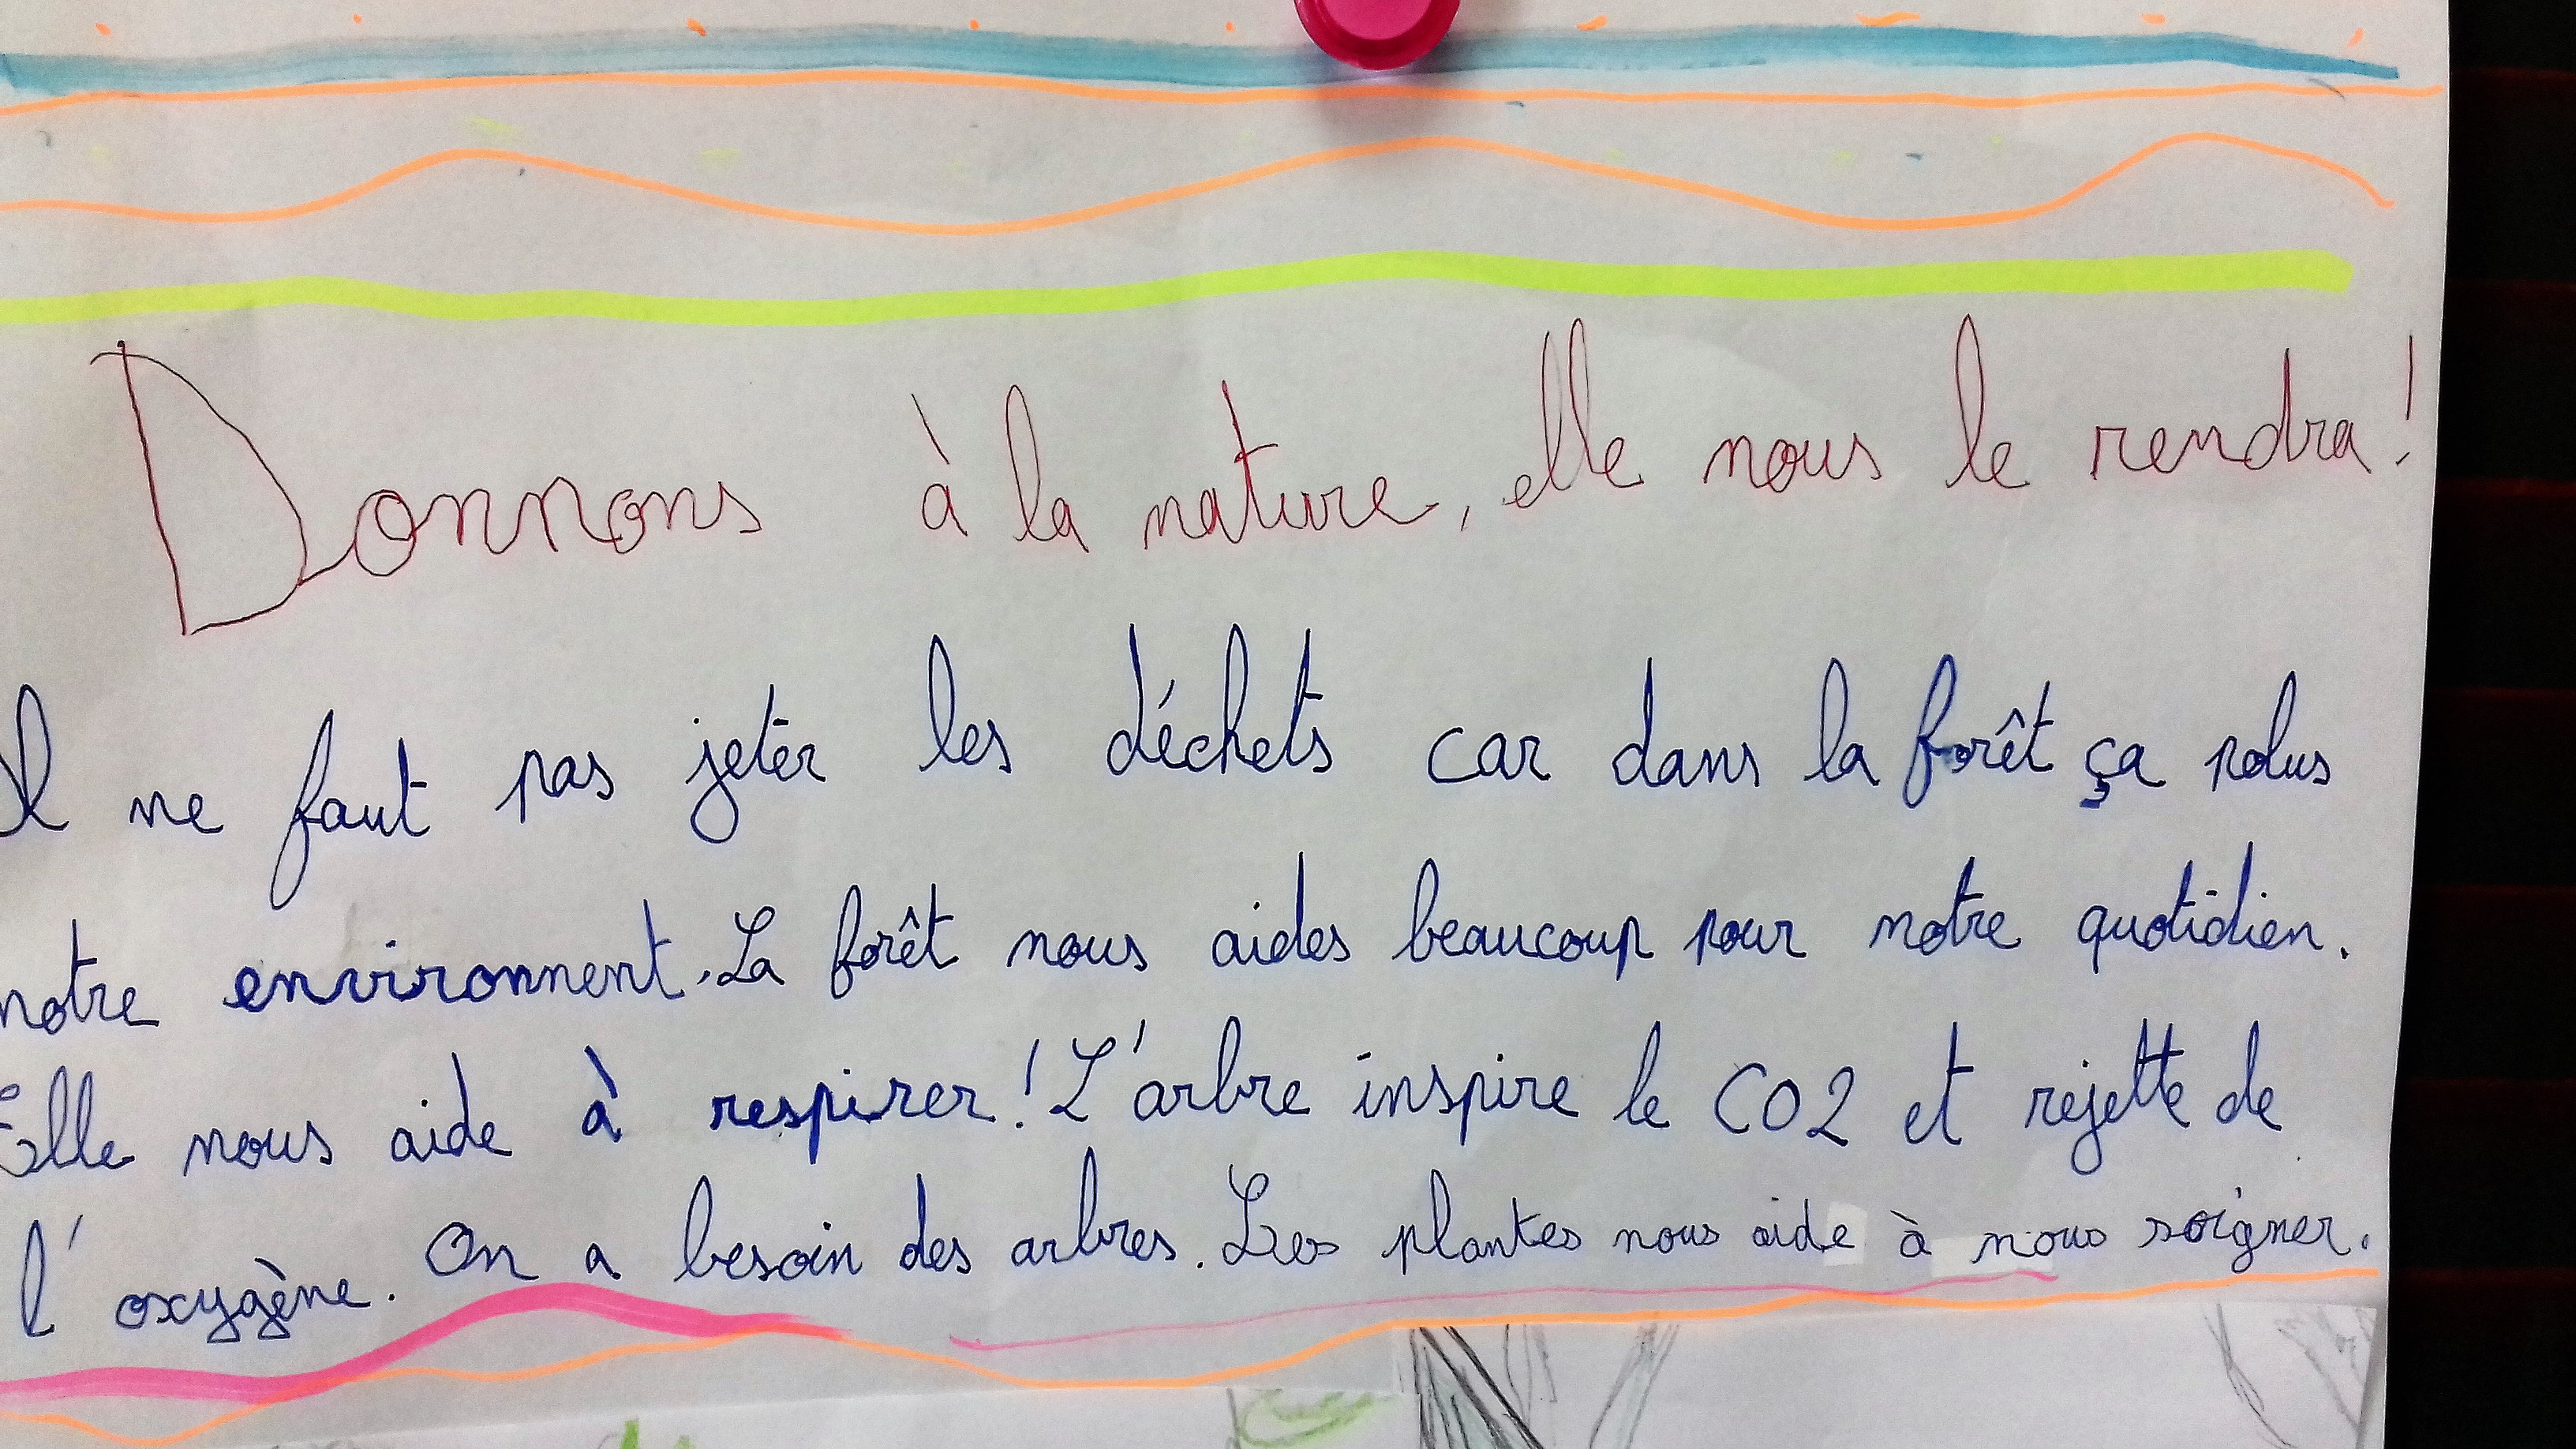 Donnons à la nature, elle nous le rendra!
Il ne faut pas jeter les déchets car dans la forêt ça polus
notre environnent. La forêt nous aides beaucoup pour notre quotidien.
Elle nous aide à respirer! L'arbre inspire le CO2 et rejette de
l'oxygène. On a besoin des arbres. Les plantes nous aide à nous soigner.